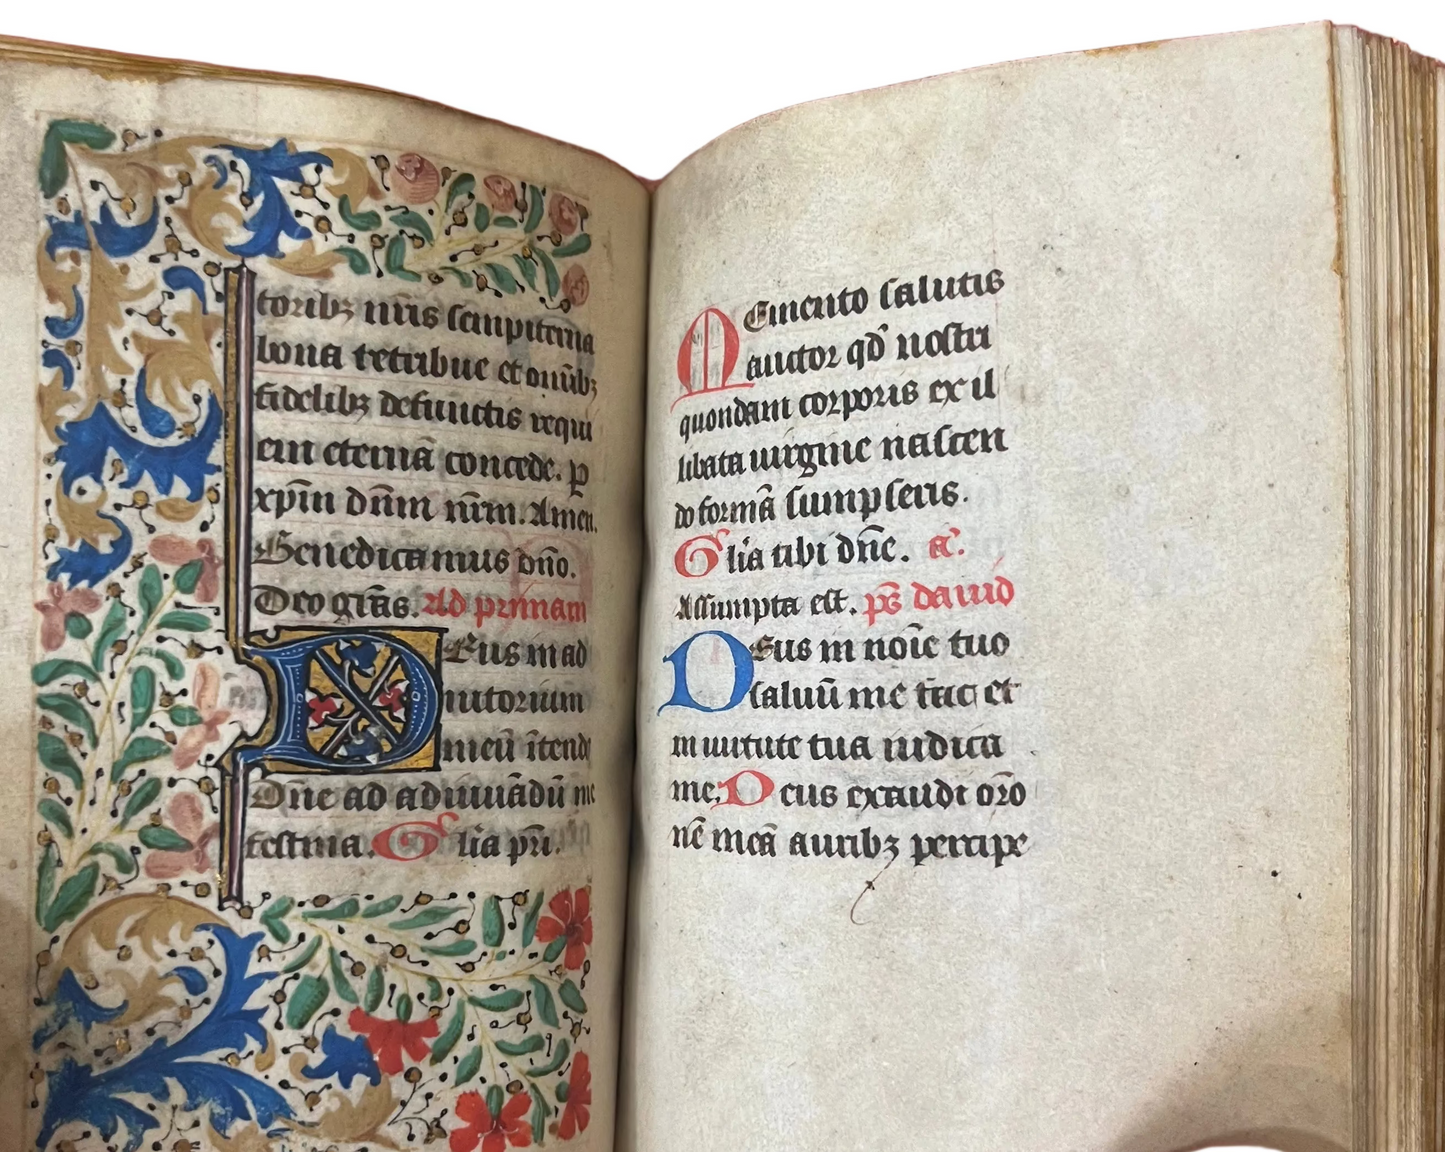 toribȝ nr̄is sempiterna
bona retribue et om̄ibȝ
fidelibȝ defunctis requi
em eternā concede. ꝑ
xp̄m dn̄m nr̄m. Amen.
Benedicamus dn̄o.
Deo gr̄as. Ad primam
Deus in ad
iutorium
meū ītende
Dn̄e ad adiuuādū me
festina. Glīa pr̄i.
Memento salutis
auctor qd̓ nostri
quondam corporis ex il
libata uirgine nascen
do formā sumpseris.
Glīa tibi dn̄e. a̅.
Assumpta est. ps̄ dauid
Deus in noīe tuo
saluū me fac et
in uirtute tua iudica
me. Deus exaudi oro
nē meā auribȝ percipe